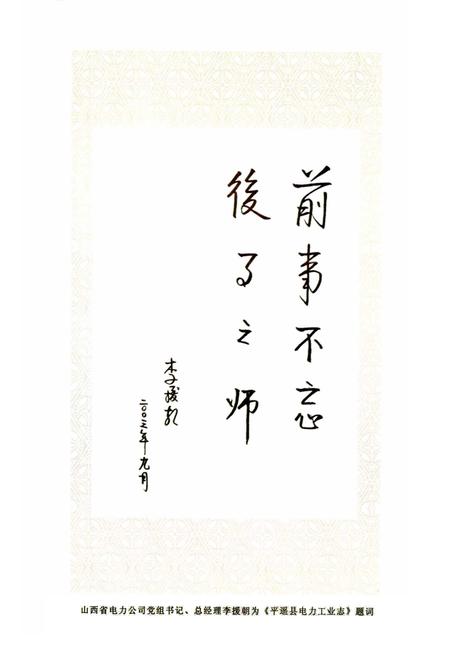 前事不忘
後事之师
李援朝
二〇〇三年九月
山西省电力公司党组书记、总经理李援朝为《平遥县电力工业志》题词